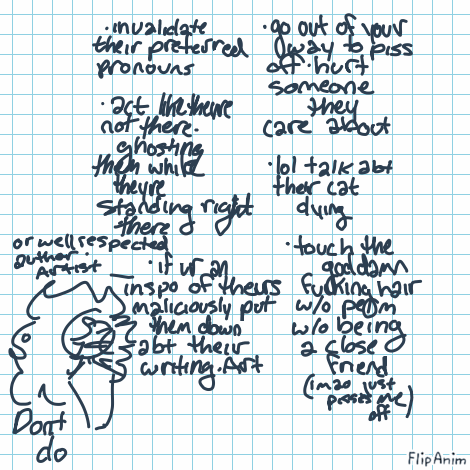 · invalidate
their preferred
pronouns
· act like theyre
not there.
ghosting
them while
theyre
standing right
there
or well respected
author.
Airtist
· if ur an
inspo of theirs
maliciously put
them down
abt their
writing. Art
· go out of your
way to piss
off. hurt
someone
they
care about
· lol talk abt
their cat
dying
· touch the
goddamn
fucking hair
w/o perm
w/o being
a close
friend
(imao just
pisses me
off)
Dont
do
FlipAnim